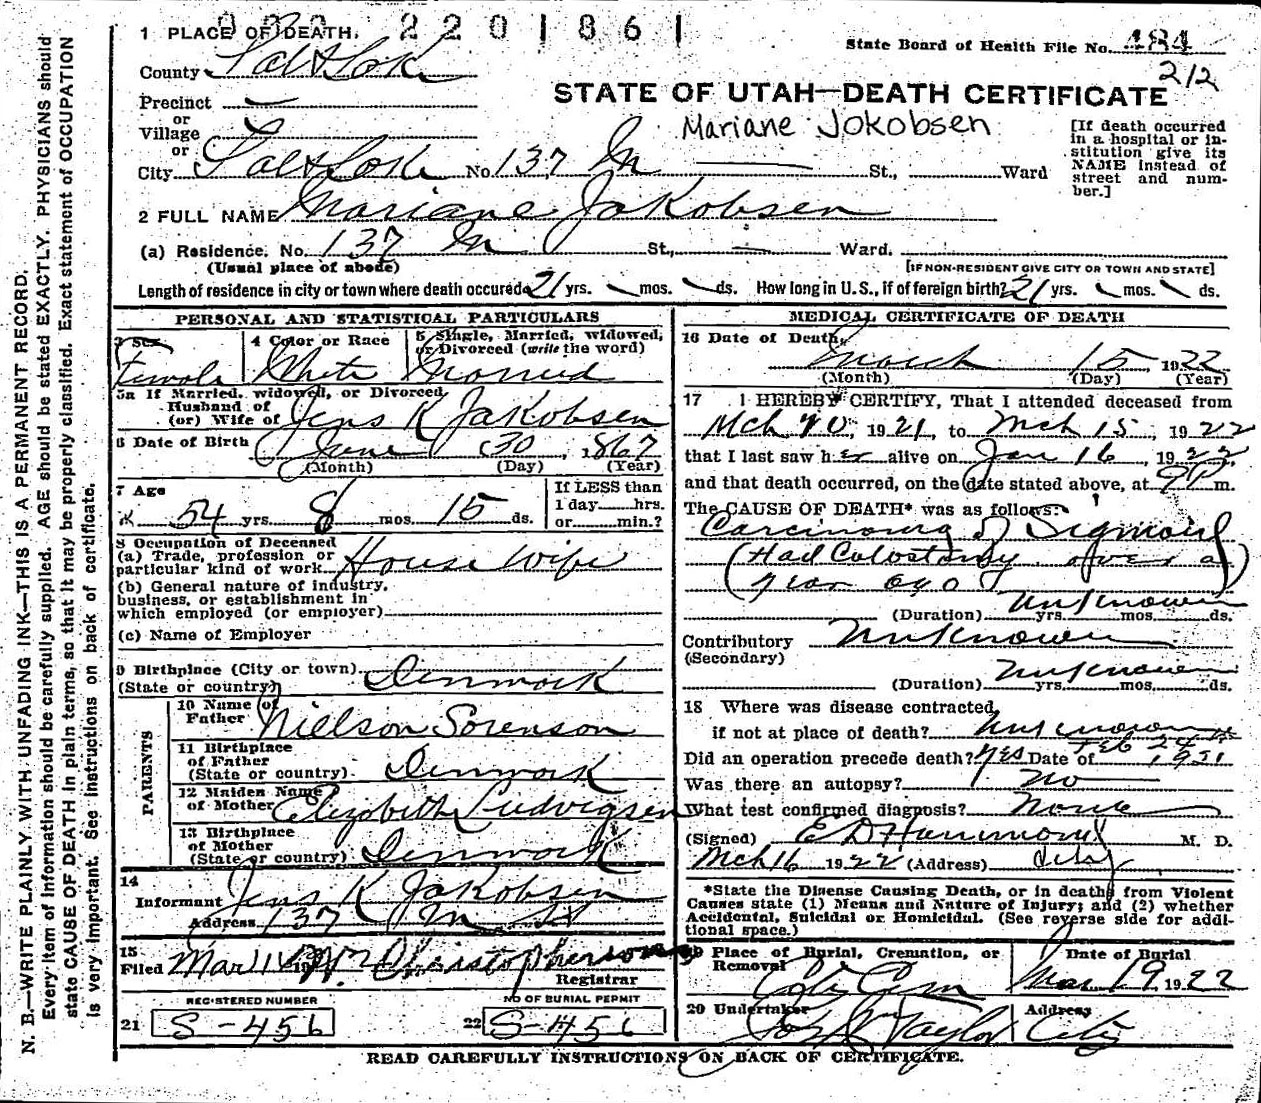 2201861
1 PLACE OF DEATH.
State Board of Health File No. 484
County Salt Lake
212
STATE OF UTAH—DEATH CERTIFICATE
Precinct
or
Village
Mariane Jokobsen
or
City Salt Lake No. 137 M St., Ward
[If death occurred in a hospital or institution give its NAME instead of street and number.]
2 FULL NAME Mariane Jakobsen
(a) Residence. No. 137 M St., Ward.
(Usual place of abode)
[IF NON-RESIDENT GIVE CITY OR TOWN AND STATE]
Length of residence in city or town where death occured 21 yrs. mos. ds. How long in U. S., if of foreign birth? 21 yrs. mos. ds.
PERSONAL AND STATISTICAL PARTICULARS
3 Sex
Female
4 Color or Race
White
5 Single, Married, widowed, or Divorced (write the word)
Married
5a If Married, widowed, or Divorced
Husband of
(or) Wife of Jens K Jakobsen
6 Date of Birth June 30, 1867
(Month) (Day) (Year)
7 Age
54 yrs. 8 mos. 15 ds.
If LESS than
1 day hrs.
or min.?
8 Occupation of Deceased
(a) Trade, profession or
particular kind of work House Wife
(b) General nature of industry,
business, or establishment in
which employed (or employer)
(c) Name of Employer
9 Birthplace (City or town)
(State or country) Denmark
PARENTS
10 Name of
Father Nielson Sorenson
11 Birthplace
of Father
(State or country) Denmark
12 Maiden Name
of Mother Elizabeth Ludvigsen
13 Birthplace
of Mother
(State or country) Denmark
14
Informant Jens K Jakobsen
Address 137 M St
15
Filed Mar 19 Wm Christophersen
Registrar
REGISTERED NUMBER
NO OF BURIAL PERMIT
21 S-456
22 S-456
MEDICAL CERTIFICATE OF DEATH
16 Date of Death,
March 15 1922
(Month) (Day) (Year)
17 I HEREBY CERTIFY, That I attended deceased from
Mch, 1921, to Mch 15, 1922
that I last saw her alive on Jan 16, 1922,
and that death occurred, on the date stated above, at 9 P m.
The CAUSE OF DEATH* was as follows:
Carcinoma of Sigmoid
(Had Colostomy over a
year ago)
(Duration) unknown yrs. mos. ds.
Contributory unknown
(Secondary)
(Duration) unknown yrs. mos. ds.
18 Where was disease contracted
if not at place of death? unknown
Did an operation precede death? yes Date of Feb 24 1921
Was there an autopsy? no
What test confirmed diagnosis? None
(Signed) E D Hammond M. D.
Mch 16 1922 (Address) City
*State the Disease Causing Death, or in deaths from Violent
Causes state (1) Means and Nature of Injury; and (2) whether
Accidental, Suicidal or Homicidal. (See reverse side for additional space.)
19 Place of Burial, Cremation, or
Removal City Cem
Date of Burial
Mar 19 1922
20 Undertaker
Jos Taylor
Address
City
READ CAREFULLY INSTRUCTIONS ON BACK OF CERTIFICATE.
N. B.—WRITE PLAINLY WITH UNFADING INK—THIS IS A PERMANENT RECORD.
Every item of information should be carefully supplied. AGE should be stated EXACTLY. PHYSICIANS should
state CAUSE OF DEATH in plain terms, so that it may be properly classified. Exact statement of OCCUPATION
is very important. See instructions on back of certificate.